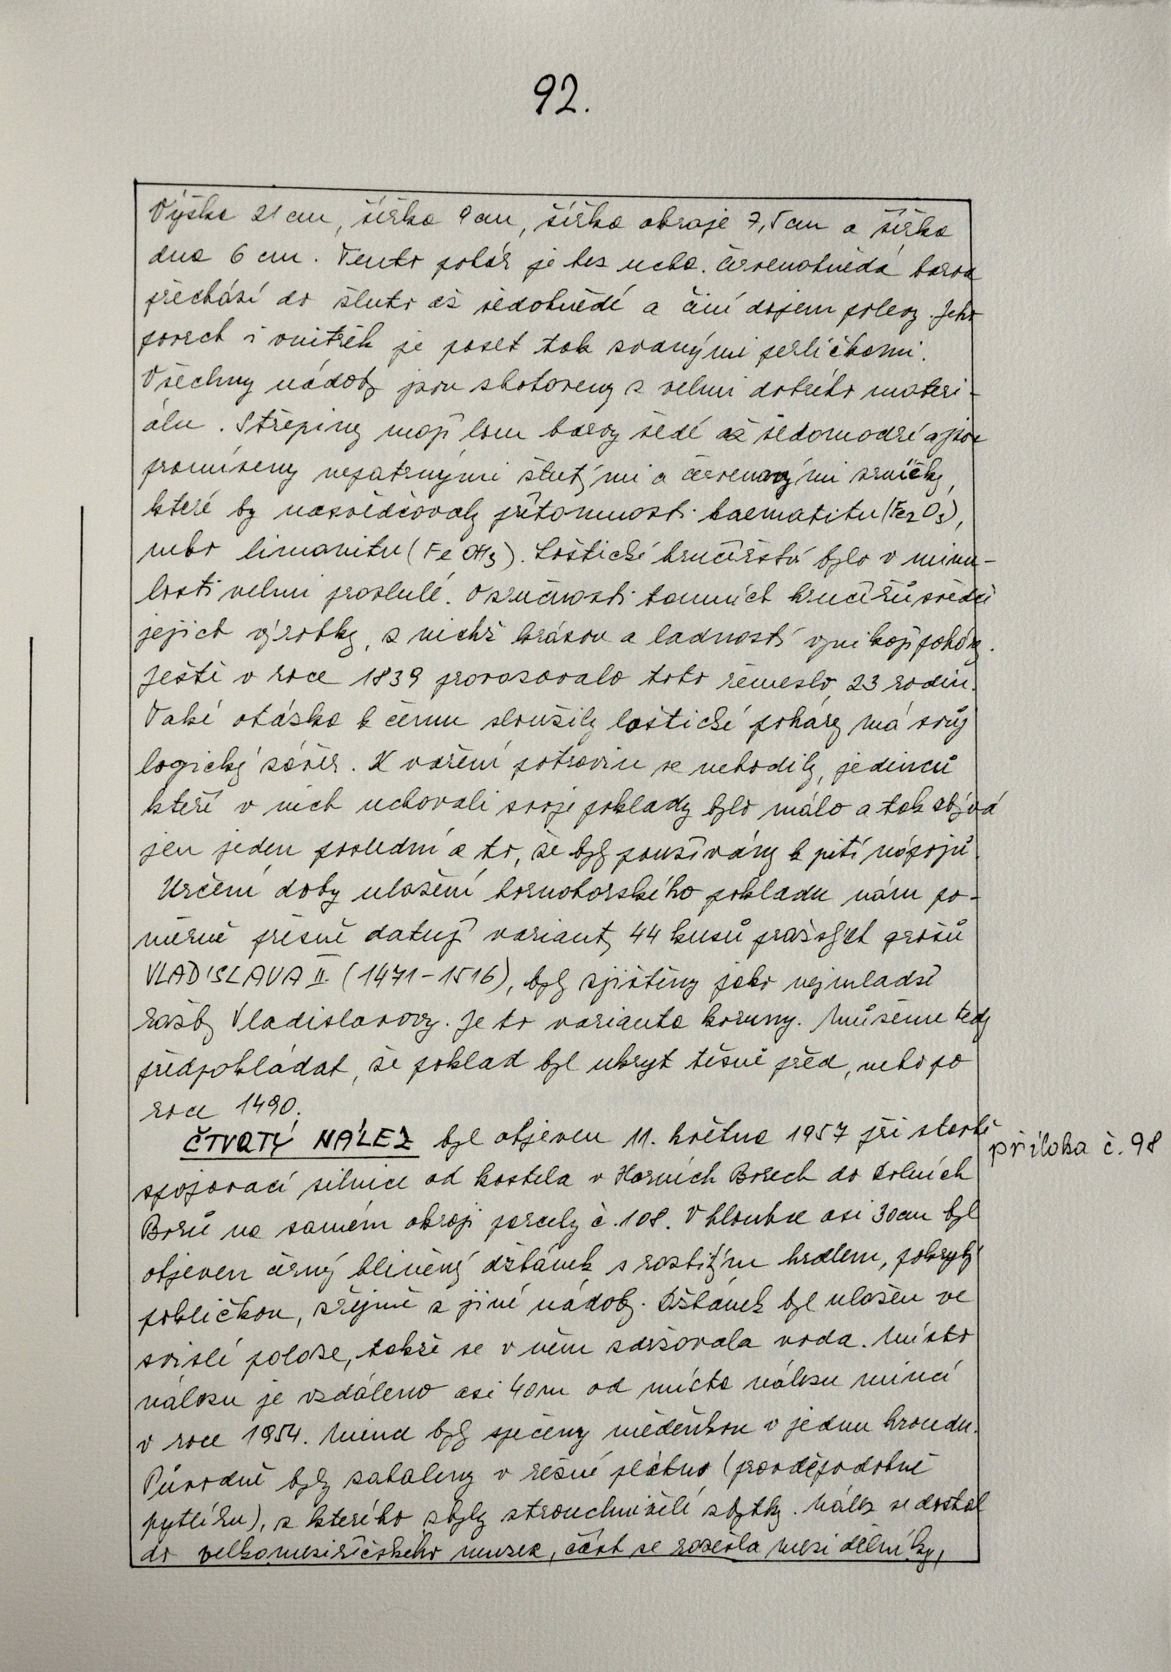 92.
Výška 21 cm, šířka 9 cm, šířka okraje 7,5 cm a šířka
dna 6 cm. Tento pohár je bez ucha. Červenohnědá barva
přechází do žluto až šedohnědé a činí dojem polevy. Jeho
povrch i vnitřek je poset tak zvanými perličkami.
Všechny nádoby jsou zhotoveny z velmi dobrého materi-
álu. Střepiny mají lom barvy šedé až šedomodré a jsou
promíseny nepatrnými žlutými a červenavými zrníčky,
které by nasvědčovaly přítomnosti haematitu (Fe2O3),
nebo limonitu (Fe OH3). Loštické hrnčířství bylo v minu-
losti velmi proslulé. O zručnosti tamních hrnčířů svědčí
jejich výrobky, z nichž krásou a ladností vynikají poháry.
Ještě v roce 1839 provozovalo toto řemeslo 23 rodin.
Také otázka k čemu sloužily loštické poháry má svůj
logický závěr. K vaření potravin se nehodily, jedinců
kteří v nich uchovali svoje poklady bylo málo a tak zbývá
jen jeden poslední a to, že byly používány k pití nápojů.
Určení doby uložení hornoborského pokladu nám po-
měrně přesně datují varianty 44 kusů pražských grošů
VLADISLAVA II. (1471-1516), byly zjištěny jako nejmladší
ražby Vladislavovy. Je to varianta koruny. Můžeme tedy
předpokládat, že poklad byl ukryt těsně před, nebo po
roce 1490.
ČTVRTÝ NÁLEZ byl objeven 11. května 1957 při stavbě
příloha č. 98
spojovací silnice od kostela v Horních Borech do Dolních
Borů na samém okraji parcely č. 108. V hloubce asi 30 cm byl
objeven černý hliněný džbánek s rozbitým hrdlem, pokrytý
pokličkou, zřejmě z jiné nádoby. Džbánek byl uložen ve
svislé poloze, takže se v něm zdržovala voda. Místo
nálezu je vzdáleno asi 40 m od místa nálezu mincí
v roce 1954. Mince byly spečeny měděnkou v jednu hroudu.
Původně byly zabaleny v režné plátno (pravděpodobně
pytlíku), z kterého zbyly ztrouchnivělé zbytky. Nález se dostal
do velkomeziříčského muzea, část se rozešla mezi dělníky,